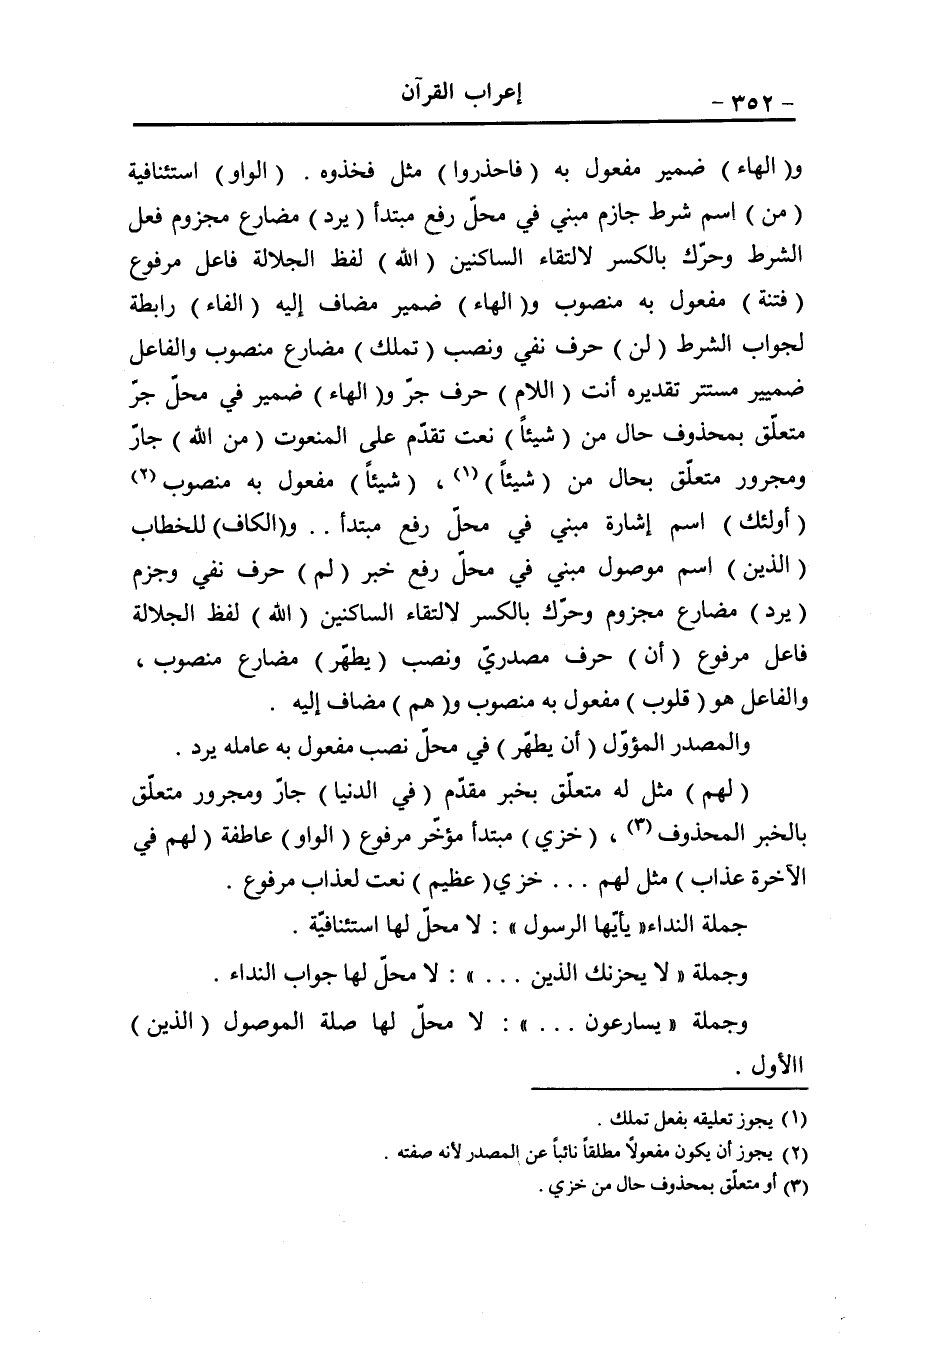 - ٣٥٢ -
إعراب القرآن
و( الهاء ) ضمير مفعول به ( فاحذروا ) مثل فخذوه . ( الواو ) استئنافية
( من ) اسم شرط جازم مبني في محلّ رفع مبتدأ ( يرد ) مضارع مجزوم فعل
الشرط وحرّك بالكسر لالتقاء الساكنين ( الله ) لفظ الجلالة فاعل مرفوع
( فتنة ) مفعول به منصوب و( الهاء ) ضمير مضاف إليه ( الفاء ) رابطة
لجواب الشرط ( لن ) حرف نفي ونصب ( تملك ) مضارع منصوب والفاعل
ضميير مستتر تقديره أنت ( اللام ) حرف جرّ و( الهاء ) ضمير في محلّ جرّ
متعلّق بمحذوف حال من ( شيئاً ) نعت تقدّم على المنعوت ( من الله ) جارّ
ومجرور متعلّق بحال من ( شيئاً ) (١) ، ( شيئاً ) مفعول به منصوب (٢)
( أولئك ) اسم إشارة مبني في محلّ رفع مبتدأ . . و(الكاف) للخطاب
( الذين ) اسم موصول مبني في محلّ رفع خبر ( لم ) حرف نفي وجزم
( يرد ) مضارع مجزوم وحرّك بالكسر لالتقاء الساكنين ( الله ) لفظ الجلالة
فاعل مرفوع ( أن ) حرف مصدريّ ونصب ( يطهّر ) مضارع منصوب ،
والفاعل هو ( قلوب ) مفعول به منصوب و( هم ) مضاف إليه .
والمصدر المؤوّل ( أن يطهّر ) في محلّ نصب مفعول به عامله يرد .
( لهم ) مثل له متعلّق بخبر مقدّم ( في الدنيا ) جارّ ومجرور متعلّق
بالخبر المحذوف (٣) ، ( خزي ) مبتدأ مؤخّر مرفوع ( الواو ) عاطفة ( لهم في
الآخرة عذاب ) مثل لهم . . . خزي( عظيم ) نعت لعذاب مرفوع .
جملة النداء« يأيّها الرسول » : لا محلّ لها استئنافيّة .
وجملة « لا يحزنك الذين . . . » : لا محلّ لها جواب النداء .
وجملة « يسارعون . . . » : لا محلّ لها صلة الموصول ( الذين )
االأول .
(١) يجوز تعليقه بفعل تملك .
(٢) يجوز أن يكون مفعولاً مطلقاً نائباً عن المصدر لأنه صفته .
(٣) أو متعلّق بمحذوف حال من خزي .